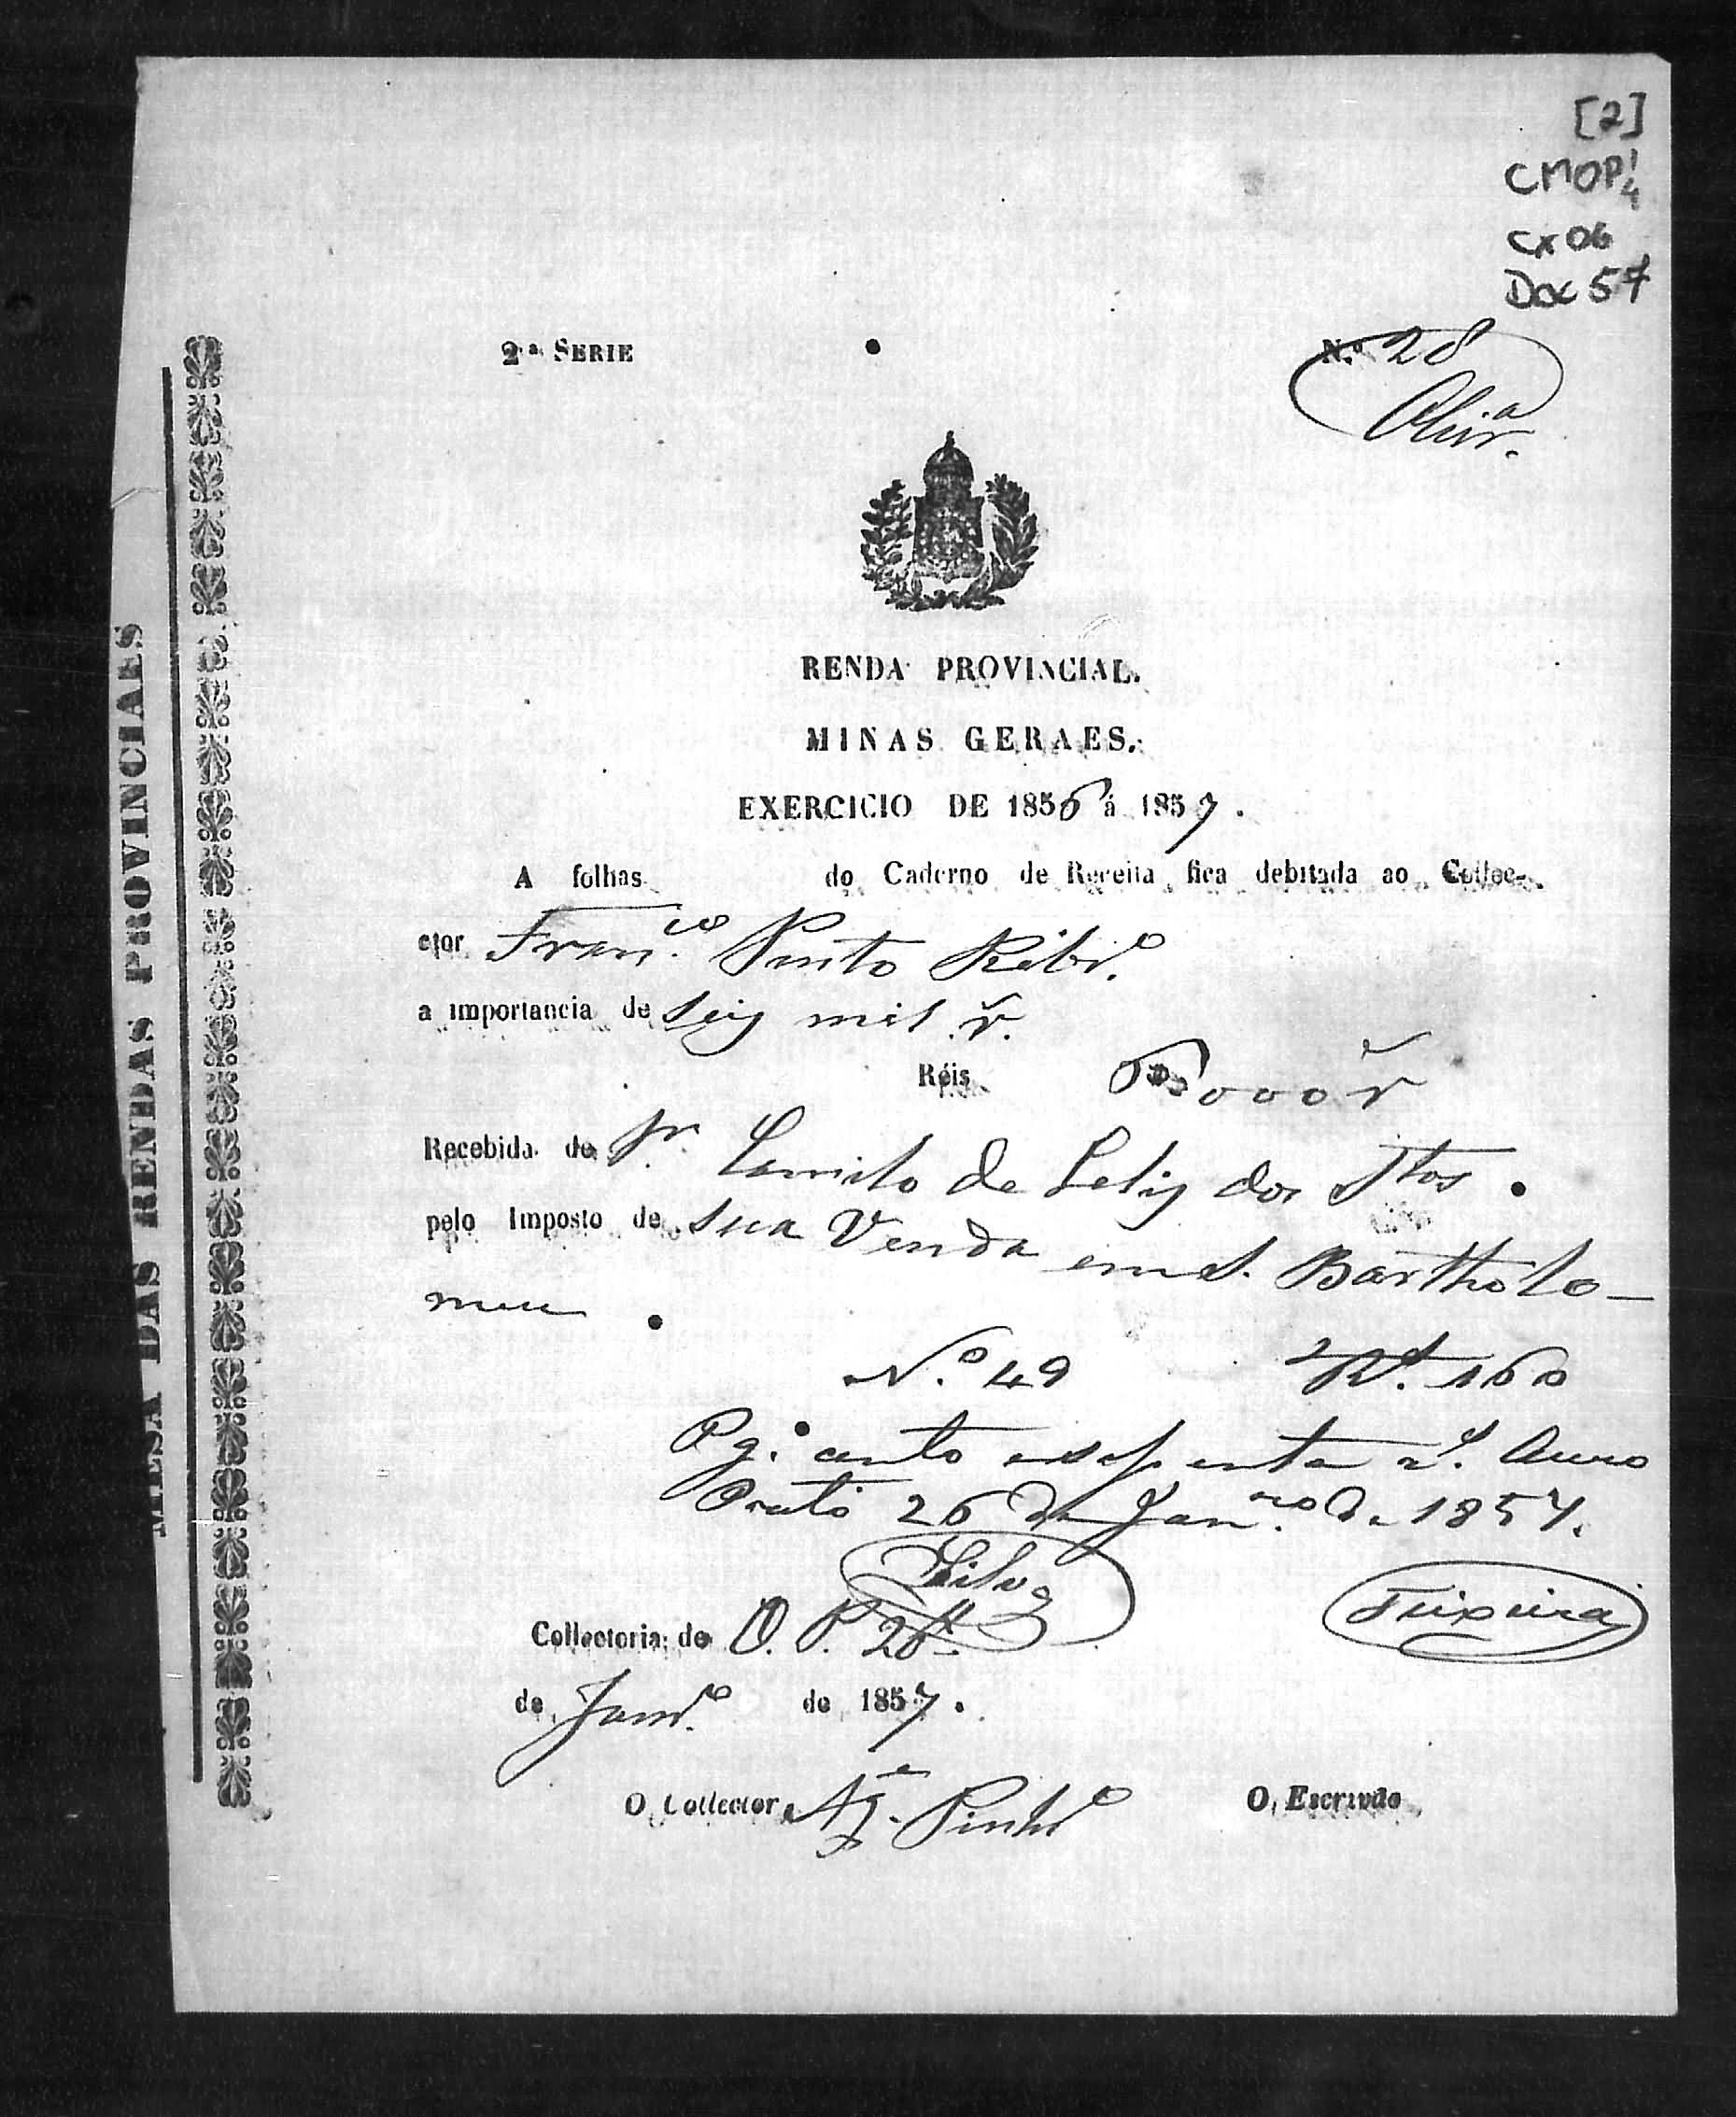 [2]
CMOP
Cx 06
Doc 57
2ª SERIE
N.º 28
Olivr.ª
RENDA PROVINCIAL.
MINAS GERAES.
EXERCICIO DE 1856 á 1857.
A folhas do Caderno de Receita fica debitada ao Collec-
ctor Fran.co Pinto Ribr.º
a importancia de seis mil r.
Réis 6$000 r
Recebida do Sr Camilo de Lelis dos Stos.
pelo Imposto de sua Venda em S. Bartholo-
meu.
N.º 49 Rs. 160
Pg. cento e sessenta rs. Ouro
Preto 26 de Jan.ro de 1857.
Silva
Teixeira
Collectoria do O. P. 26
de Janr.º de 1857.
O Collector
O Escrivão
MESA DAS RENDAS PROVINCIAES